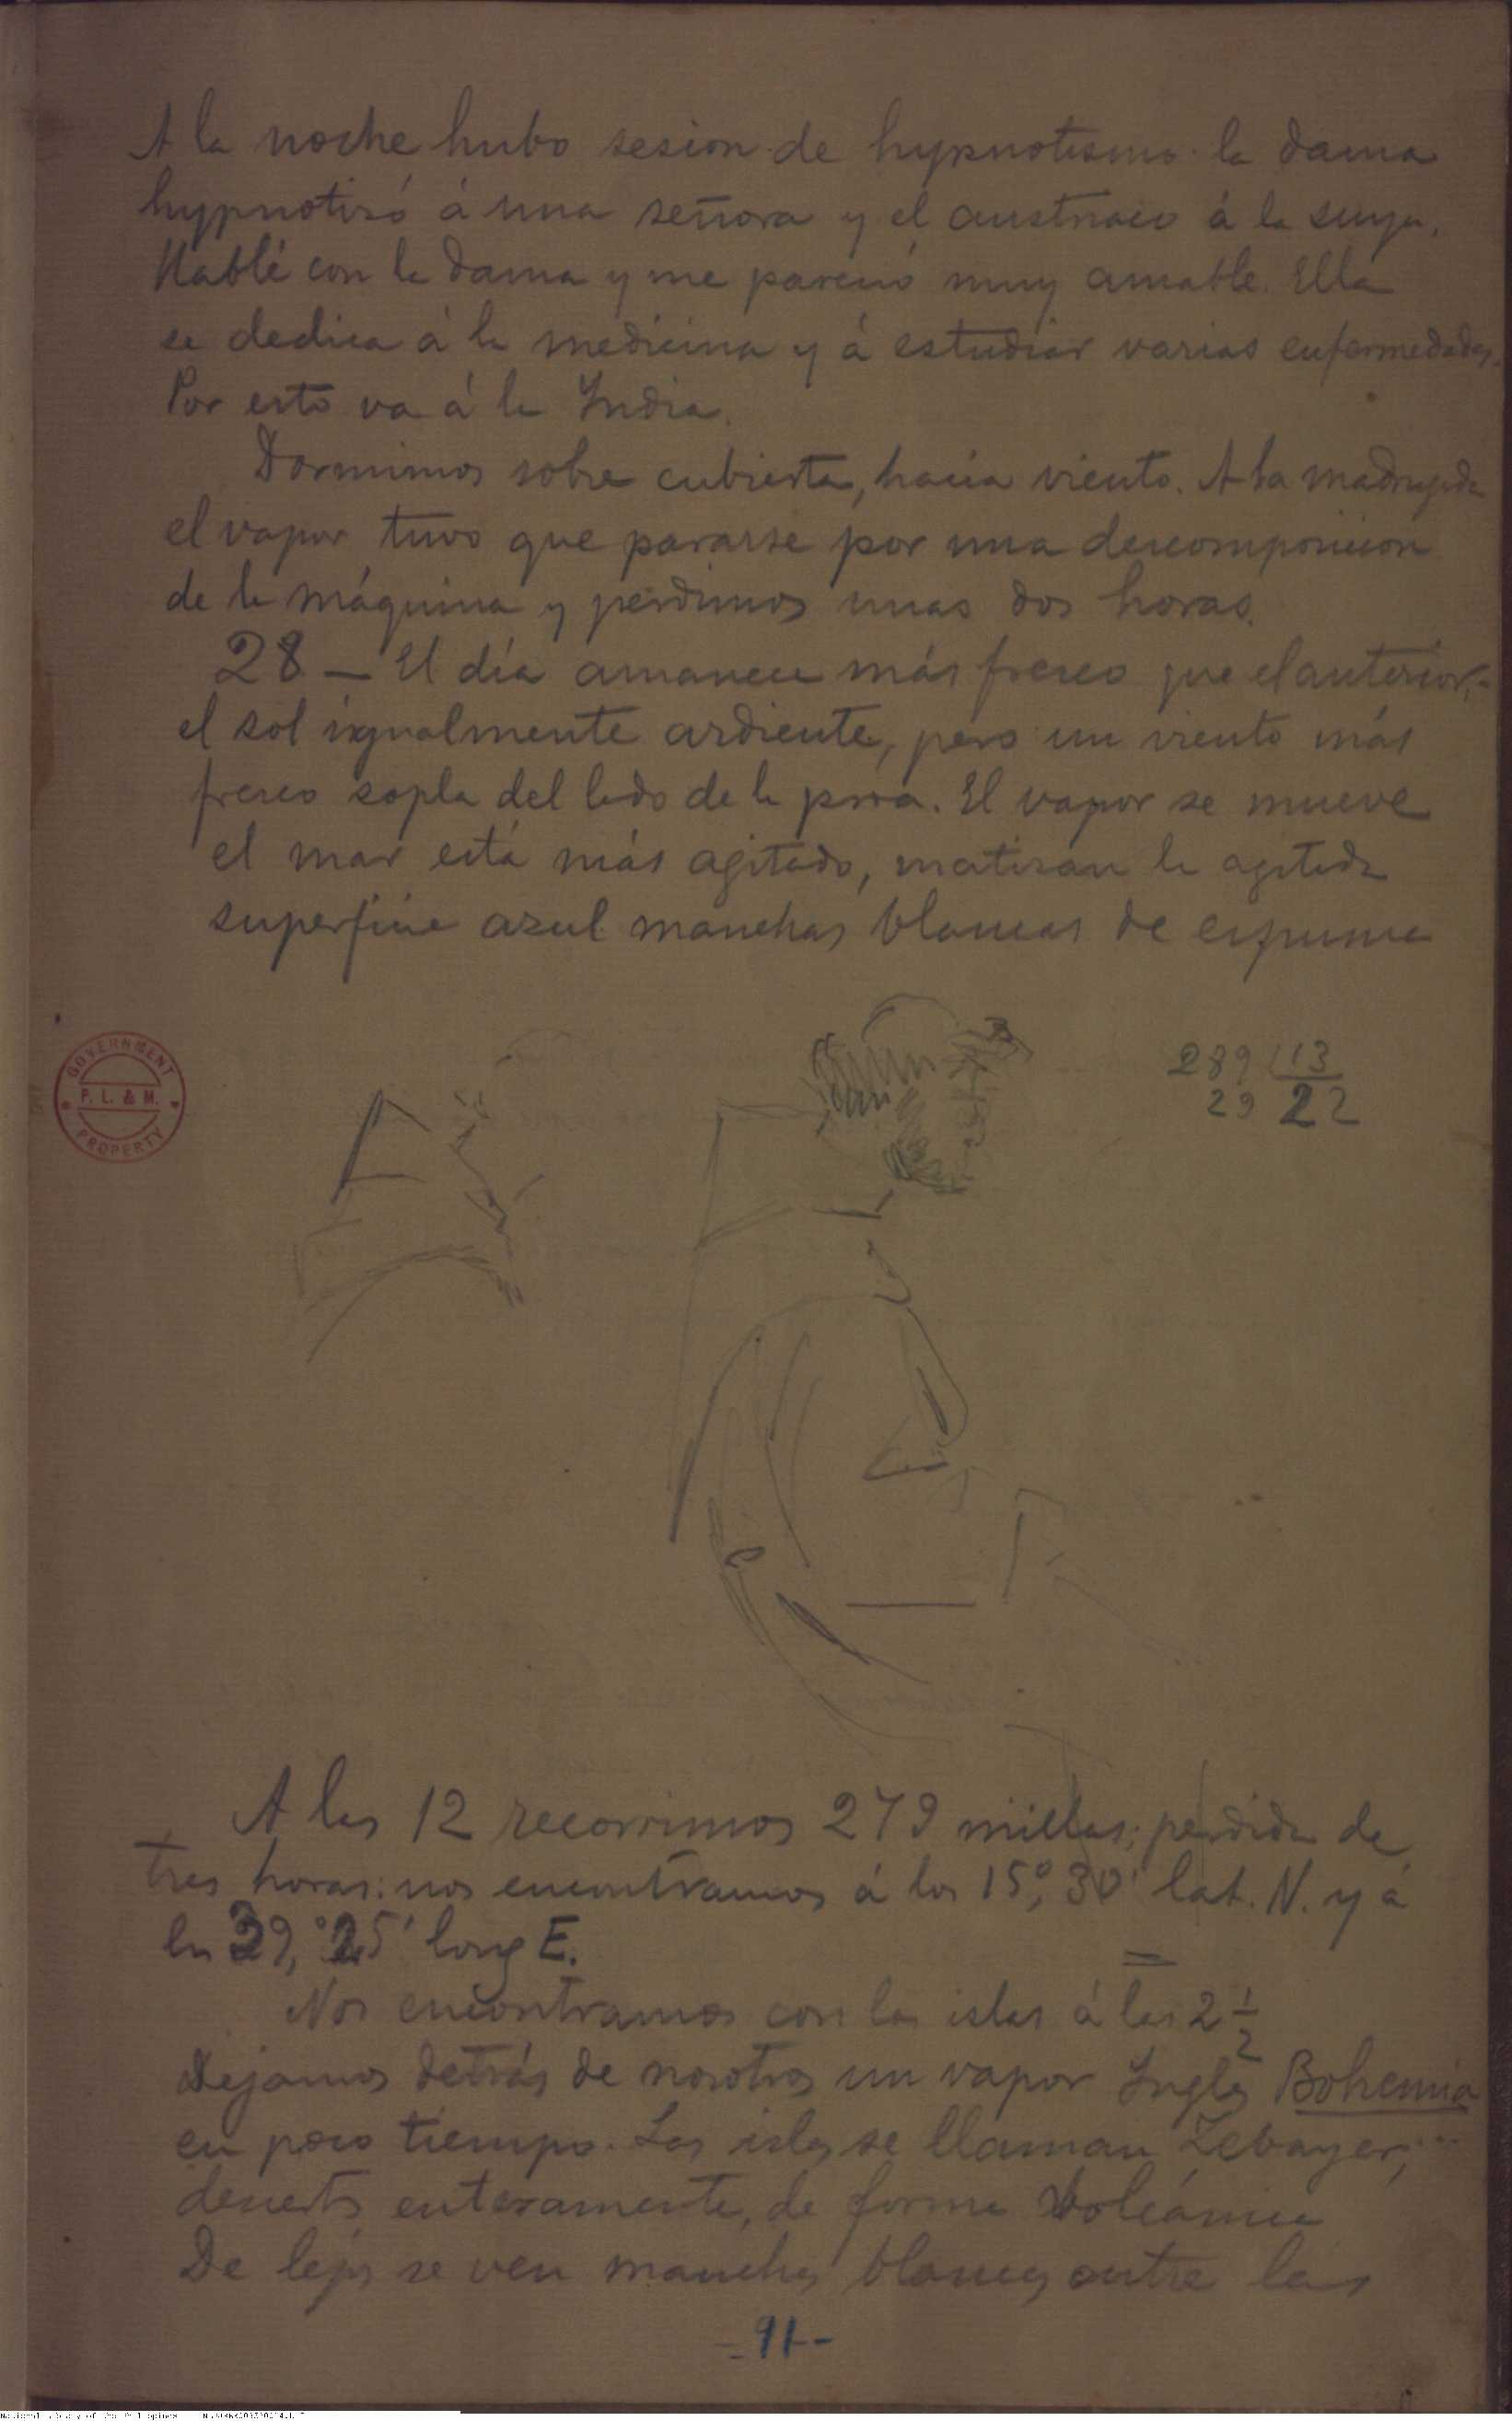 A la noche hubo sesion de hypnotismo: la dama
hypnotizó á una señora y el austriaco á la suya.
Hablé con la dama y me pareció muy amable. Ella
se dedica á la medicina y á estudiar varias enfermedades.
Por esto va á la India.
Dormimos sobre cubierta, hacía viento. A la madrugada
el vapor tuvo que pararse por una descomposicion
de la máquina y perdimos unas dos horas.
28 — El día amanece más fresco que el anterior,
el sol igualmente ardiente, pero un viento más
fresco sopla del lado de la proa. El vapor se mueve
el mar está más agitado, matizan la agitada
superficie azul manchas blancas de espuma
289 13
29 22
GOVERNMENT
P. L. & M.
PROPERTY
A las 12 recorrimos 279 millas; perdida de
tres horas: nos encontramos á los 15°, 30' lat. N. y á
los 39,° 25' long E.
Nos encontramos con las islas á las 2 1/2
Dejamos detrás de nosotros un vapor Inglés Bohemia
en poco tiempo. Las islas se llaman Zebayer,
desiertas enteramente, de forma volcánica
De lejos se ven manchas blancas entre las
- 91 -
National Library of the Philippines